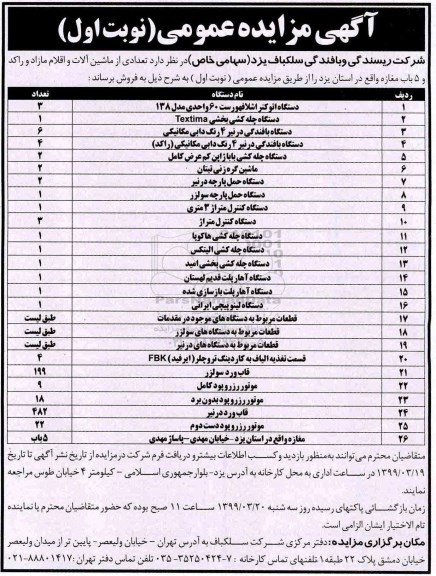 آگهی مزایده عمومی (نوبت اول)
شرکت ریسندگی وبافندگی سلکباف یزد (سهامی خاص) در نظر دارد تعدادی از ماشین آلات و اقلام مازاد و راکد
و ۵ باب مغازه واقع در استان یزد را از طریق مزایده عمومی ( نوبت اول ) به شرح ذیل به فروش برساند :
ردیف نام دستگاه تعداد
۱ دستگاه اتوکنر اشلافهورست ۶۰ واحدی مدل ۱۳۸ ۳
۲ دستگاه چله کشی بخشی Textima ۱
۳ دستگاه بافندگی درنیر ۴ رنگ دابی مکانیکی ۶
۴ دستگاه بافندگی درنیر ۴ رنگ دابی مکانیکی (راکد) ۴
۵ دستگاه چله کشی بابا ژاپن کم عرض کامل ۲
۶ ماشین گره زنی تیتان ۲
۷ دستگاه حمل پارچه درنیر ۲
۸ دستگاه حمل پارچه سولزر ۱
۹ دستگاه کنترل متراژ ۳ متری ۱
۱۰ دستگاه کنترل متراژ ۳
۱۱ دستگاه چله کشی هاکوبا ۱
۱۲ دستگاه چله کشی الیتکس ۱
۱۳ دستگاه چله کشی بخشی امید ۱
۱۴ دستگاه آهار پلت قدیم لهستان ۱
۱۵ دستگاه آهار پلت بازسازی شده ۱
۱۶ دستگاه لینو پیچی ایرانی ۱
۱۷ قطعات مربوط به دستگاه های موجود در مقدمات طبق لیست
۱۸ قطعات مربوط به دستگاه های سولزر طبق لیست
۱۹ قطعات مربوط به دستگاه های درنیر طبق لیست
۲۰ قسمت تغذیه الیاف به کاردینگ تروچلر (ایرفید) FBK ۴
۲۱ قاب ورد سولزر ۱۹۹
۲۲ موتور رزرو پود کامل ۹
۲۳ موتور رزرو پود بدون برد ۱۸
۲۴ قاب ورد درنیر ۴۸۲
۲۵ موتور رزرو پود دست دوم ۲۲
۲۶ مغازه واقع در استان یزد - خیابان مهدی - پاساژ مهدی ۵ باب
متقاضیان محترم می‌توانند به منظور بازدید و کسب اطلاعات بیشتر و دریافت فرم شرکت در مزایده از تاریخ نشر آگهی تا تاریخ
۱۳۹۹/۰۳/۱۹ در ساعات اداری به محل کارخانه به آدرس یزد- بلوار جمهوری اسلامی - کیلومتر ۴ خیابان طوس مراجعه
نمایند.
زمان بازگشائی پاکتهای رسیده روز سه شنبه ۱۳۹۹/۰۳/۲۰ ساعت ۱۱ صبح بوده که حضور متقاضیان محترم یا نماینده
تام الاختیار ایشان الزامی است.
مکان برگزاری مزایده : دفتر مرکزی شرکت سلکباف به آدرس تهران - خیابان ولیعصر- پایین تر از میدان ولیعصر
خیابان دمشق پلاک ۲۲ طبقه ۱ تلفنهای تماس کارخانه : ۷-۳۵۲۵۰۴۲۴-۰۳۵ تلفن تماس دفتر تهران : ۸۸۸۰۱۴۱۷-۰۲۱